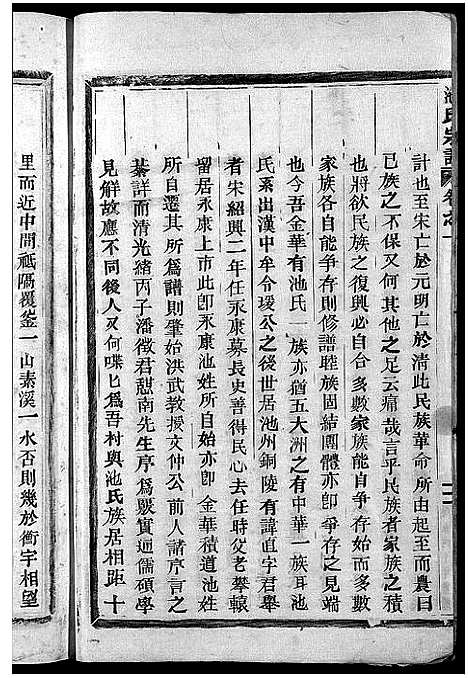 池氏宗譜 卷之一
計也至宋亡於元明亡於清此民族革命所由起至而農曰
已族之不保又何其他之足云痛哉言乎民族者家族之積
也將欲民族之復興必自合多數家族能自爭存始而多數
家族各自能爭存則修譜睦族固結團體亦即爭存之見端
也今吾金華有池氏一族亦猶五大洲之有中華一族耳池
氏系出漢中牟令瑗公之後世居池州銅陵有諱直字君舉
者宋紹興二年任永康幕長史善得民心去任時父老攀轅
留居永康上市此卽永康池姓所自始亦卽金華積道池姓
所自遷其所爲譜則肇始洪武教授文仲公前人諸序言之
綦詳而清光緒丙子潘徵君慰南先生序爲嚴實通儒碩學
見解故應不同後人又何喋匕爲吾村與池氏族居相距十
里而近中間祗隔覆釡一山素溪一水否則幾於衡宇相望